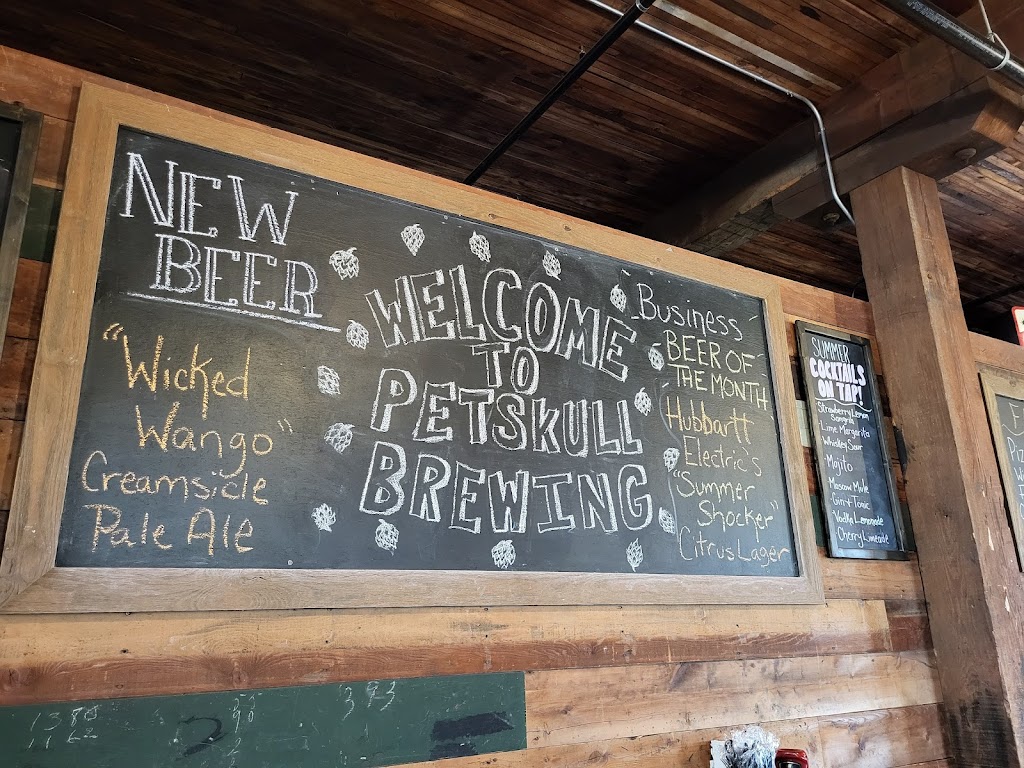 NEW
BEER
"Wicked
Wango"
Creamsicle
Pale Ale
WELCOME
TO
PETSKULL
BREWING
Business
BEER OF
THE MONTH
Hubbartt
Electric's
"Summer
Shocker"
Citrus Lager
SUMMER
COCKTAILS
ON TAP!
Strawberry Lemon
Sangria
Lime Margarita
Whiskey Sour
Mojito
Moscow Mule
Gin + Tonic
Vodka Lemonade
Cherry Limeade
F
Piz